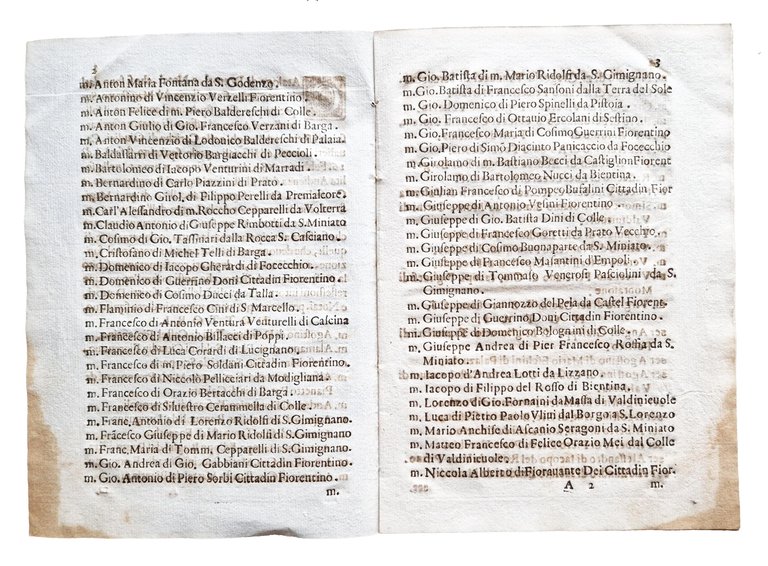 m. Anton Maria Fontana da S. Godenzo.
m. Antonino di Vincenzio Verzelli Fiorentino.
m. Anton Felice di m. Piero Baldereschi di Colle.
m. Anton Giulio di Gio. Francesco Verzani di Barga.
m. Anton Vincenzio di Lodonico Baldereschi di Palaia.
m. Baldassarri di Vettorio Bargiacchi di Peccioli.
m. Bartolomeo di Iacopo Venturini di Marradi.
m. Bernardino di Carlo Piazzini di Prato.
m. Bernardino Girol, di Filippo Perelli da Premalcore.
m. Carl'Alesandro di m. Roccho Cepparelli da Volterra
m. Claudio Antonio di Giuseppe Rimbotti da S. Miniato
m. Cosimo di Gio. Tassinari dalla Rocca S. Casciano.
m. Cristofano di Michel Telli di Barga.
m. Domenico di Iacopo Gherardi di Focecchio.
m. Domenico di Guerrino Doni Cittadin Fiorentino.
m. Domenico di Cosimo Ducci da Talla.
m. Flaminio di Francesco Cini di S. Marcello.
m. Francesco di Antonio Ventura Venturelli di Cascina
m. Francesco di Antonio Billacci di Poppi.
m. Francesco di Luca Corardi di Lucignano.
m. Francesco di m. Piero Soldani Cittadin Fiorentino.
m. Francesco di Niccolò Pellicciari da Modigliana.
m. Francesco di Orazio Bertacchi di Barga.
m. Francesco di Siluestro Cerammella di Colle.
m. Franc, Antonio di Lorenzo Ridolfi di S. Gimignano.
m. Frācesco Giuseppe di Mario Ridolfi di S. Gimignano
m. Franc, Maria di Tomm, Cepparelli di S. Gimignano.
m. Gio. Andrea di Gio, Gabbiani Cittadin Fiorentino.
m. Gio. Antonio di Piero Sorbi Cittadin Fiorentino.
m.
3
m. Gio. Batista di m. Mario Ridolfi da S. Gimignano.
m. Gio. Batista di Francesco Sansoni dalla Terra del Sole
m. Gio. Domenico di Piero Spinelli da Pistoia.
m. Gio. Francesco di Ottauio Ercolani di Sestino.
m. Gio. Francesco Maria di Cosimo Guerrini Fiorentino
m. Gio. Piero di Simō Diacinto Panicaccio da Focecchio
m. Girolamo di m. Bastiano Becci da Castiglion Fiorent
m. Girolamo di Bartolomeo Nucci da Bientina.
m. Giulian Francesco di Pompeo Bufalini Cittadin Fior
m. Giuseppe di Antonio Velini Fiorentino.
m. Giuseppe di Gio. Batista Dini di Colle.
m. Giuseppe di Francesco Goretti da Prato Vecchio.
m. Giuseppe di Cosimo Buonaparte da S. Miniato.
m. Giuseppe di Francesco Masantini d'Empoli.
m. Giuseppe di Tommaso Venerosi Pasciolini da S.
Gimignano.
m. Giuseppe di Giannozzo del Pela da Castel Fiorent.
m. Giuseppe di Guerrino Doni Cittadin Fiorentino.
m. Giuseppe di Domenico Bolognini di Colle.
m. Giuseppe Andrea di Pier Francesco Rossia da S.
Miniato.
m. Iacopo d'Andrea Lotti da Lizzano.
m. Iacopo di Filippo del Rosso di Bientina.
m. Lorenzo di Gio. Fornaini da Massa di Valdinieuole
m. Luca di Pietro Paolo Vlini dal Borgo a S. Lorenzo
m. Mario Anchise di Ascanio Seragoni da S. Miniato
m. Matteo Francesco di Felice Orazio Mei dal Colle
di Valdinieuole.
m. Niccola Alberto di Fiorauante Dei Cittadin Fior.
A 2 m.